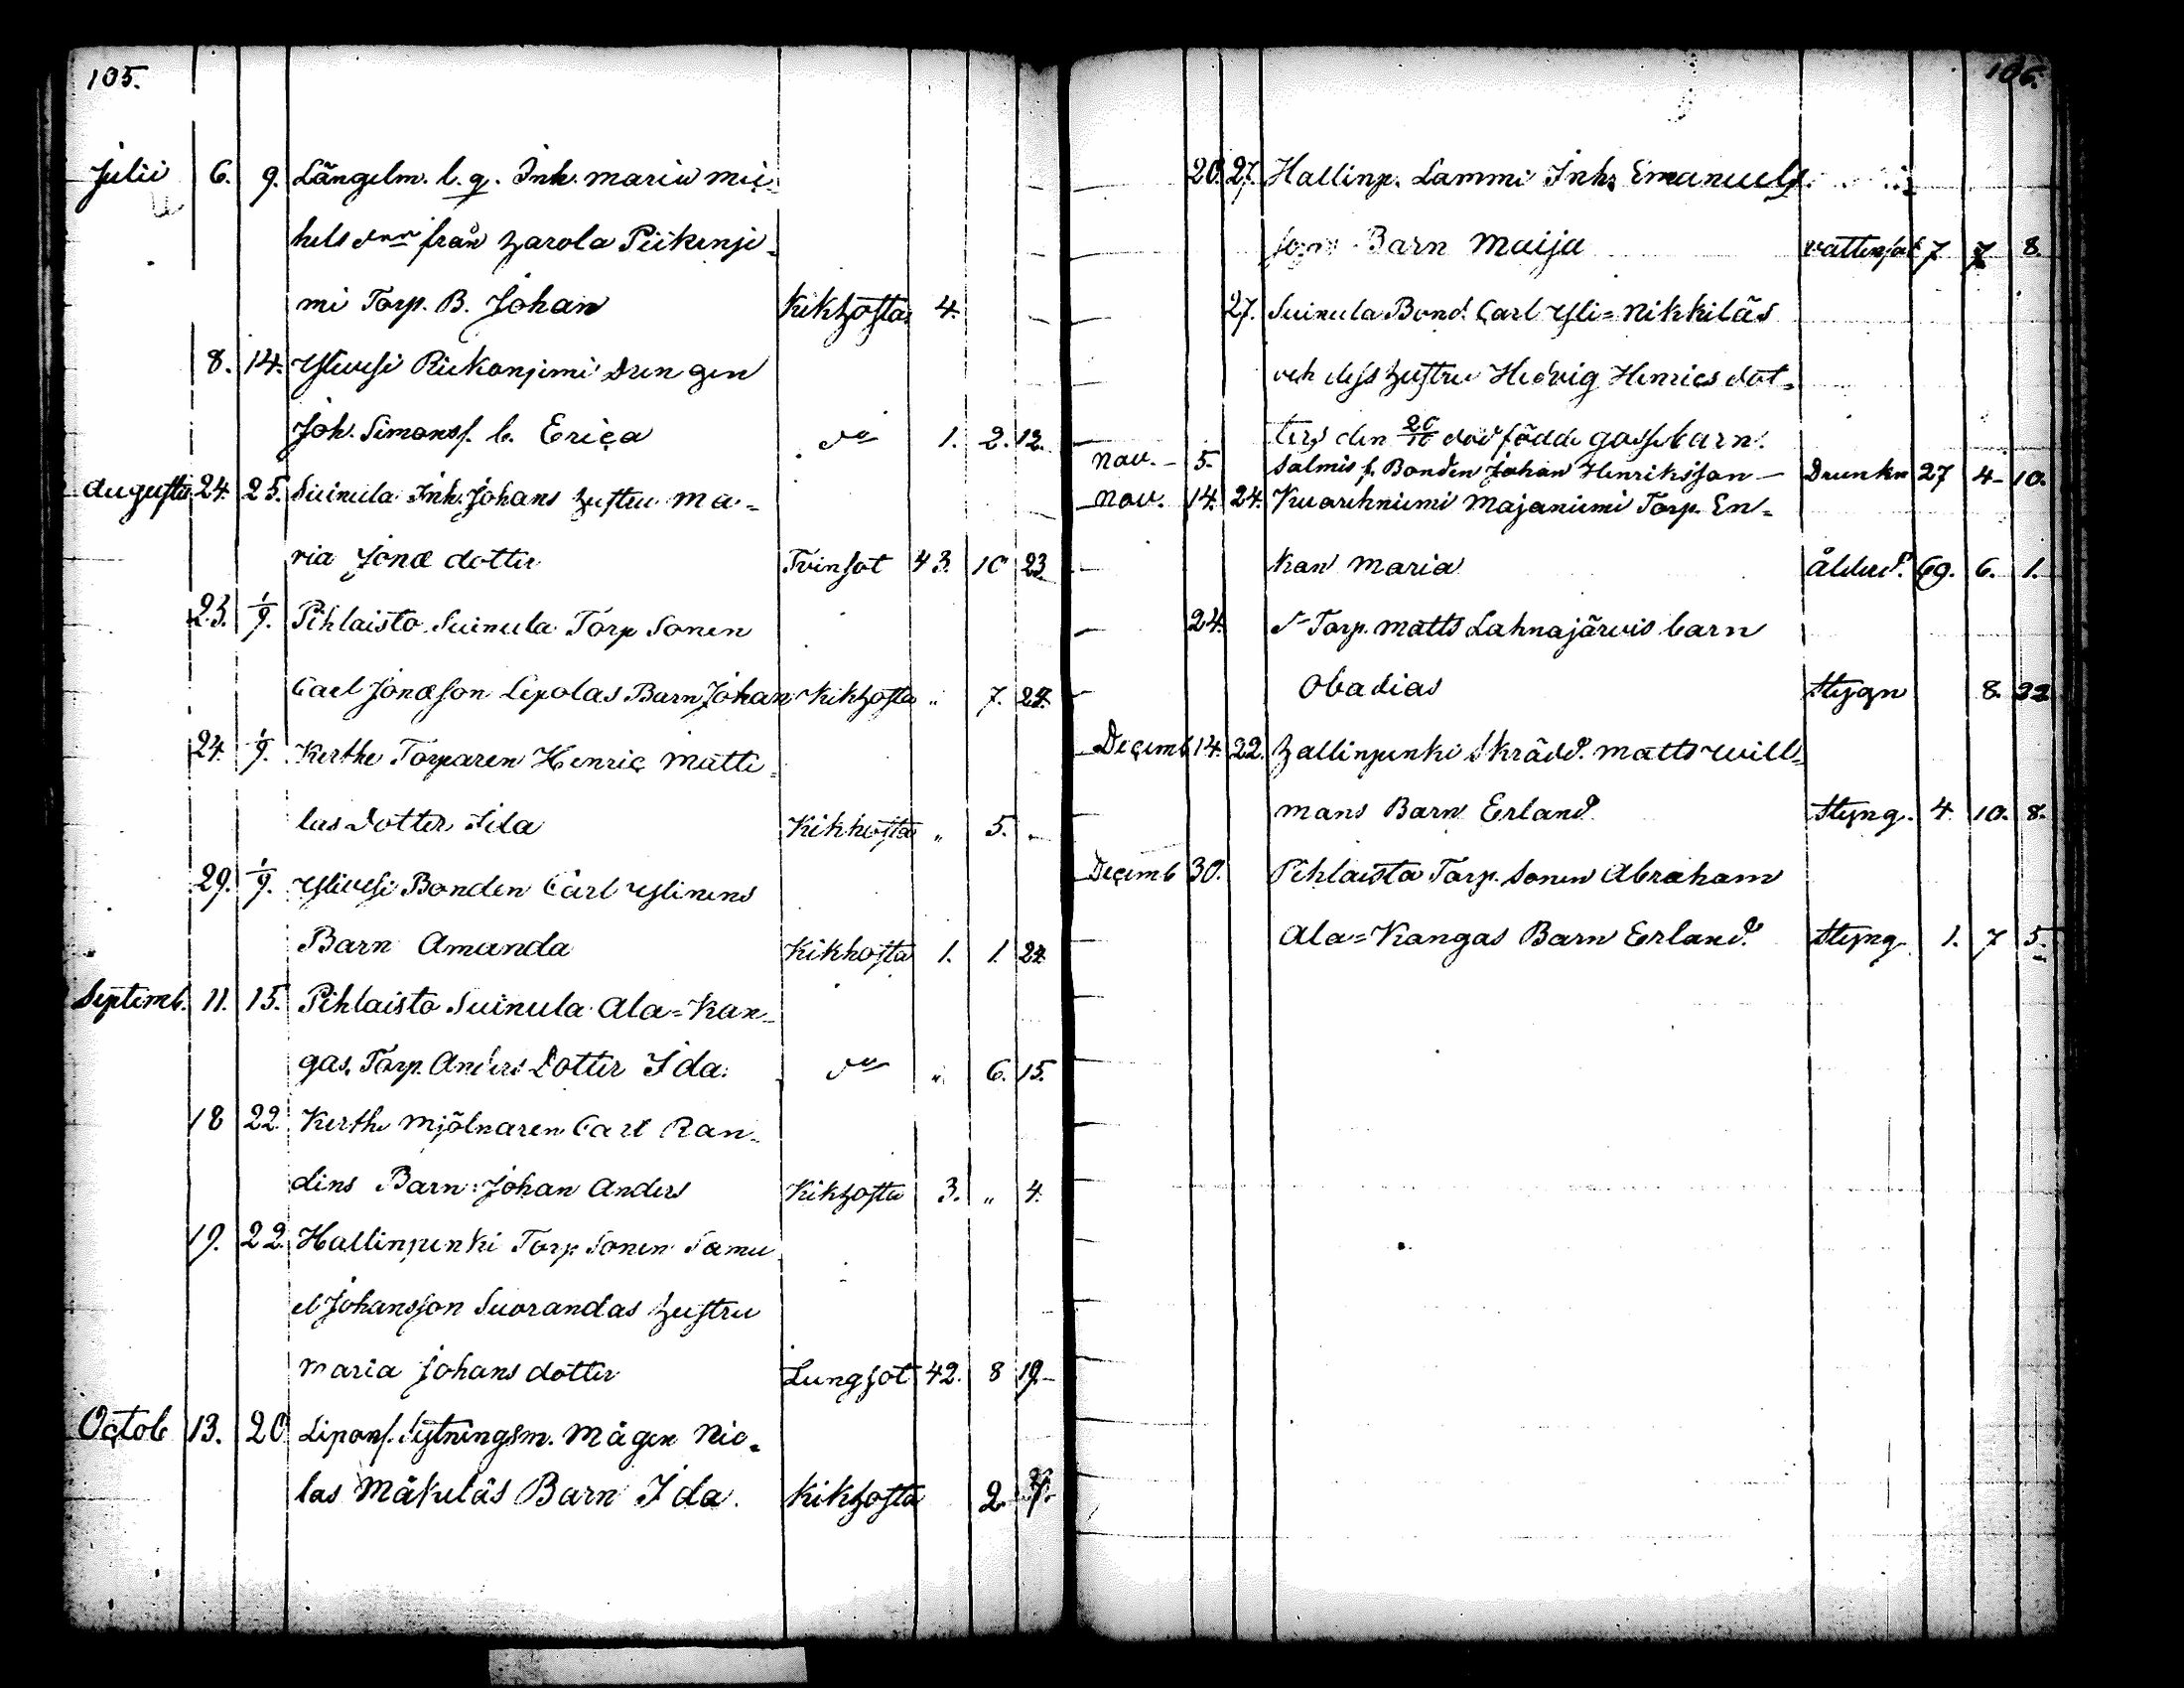 105.
Julii 6. 9. Längelm. b. q. Inh. Maria Mic-
hels dnn från Harola Piikenje-
mi Torp. B. Johan Kikhosta 4.
8. 14. Ylivesi Riekonjemi Drengen
Joh. Simonss. b. Erica do 1. 2. 12.
Augusti 24. 25. Suinula Inh. Johans hustru Ma-
ria Jonæ dotter Tvinsot 43. 10 23
23. 1/9. Pihlaisto Suinula Torp Sonen
Carl Jonæson Lepolas Barn Johan Kikhosta " 7. 24.
24. 1/9. Kerthe Torparen Henric Matti-
las Dotter Ida Kikhosta " 5. "
29. 1/9. Ylivesi Bonden Carl Ylinens
Barn Amanda Kikhosta 1. 1. 24.
Septemb. 11. 15. Pihlaisto Suinula Ala=Kan-
gas. Torp. Anders Dotter Ida. do " 6. 15.
18 22. Kerthe Mjölnaren Carl Ran-
dins Barn Johan Anders Kikhosta 3. " 4.
19. 22. Hallinpenki Torp Sonen Samu
el Johansson Suorandas hustru
Maria Johans dotter Lungsot 42. 8 19.
Octob 13. 20 Lipons. Sytningsm. Mågen Nic-
las Mäkeläs Barn Ida. Kikhosta 2.
106.
20. 27. Hallinp. Lammi Inhs Emanuels
sons Barn Maija vattensot 7 7 8.
27. Suinula Bond. Carl Yli=Nikkiläs
och dess hustru Hedvig Henrics dot-
ters den 20/10 dödfödde gossebarn.
Nov. 5. Salmis f. Bonden Johan Henriksson Drunkn 27 4 10.
Nov. 14. 24. Kuorehniemi Majaniemi Torp. En-
kan Maria ålderd. 69. 6. 1.
24. d Torp. Matts Lahnajärvis barn
Obadias Styngn 8. 22
Decemb 14. 22. Hallinpenki Skrädd. Matts Will-
mans Barn Erland Styng. 4 10. 8.
Decemb 30. Pihlaista Torp. Sonen Abraham
Ala=Kangas Barn Erland. Styng. 1. 7 5.